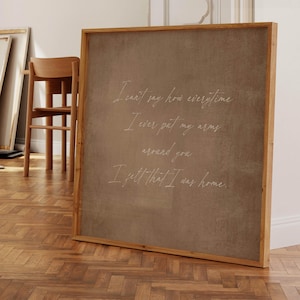 I can't say how everytime
I ever put my arms
around you
I felt that I was home.